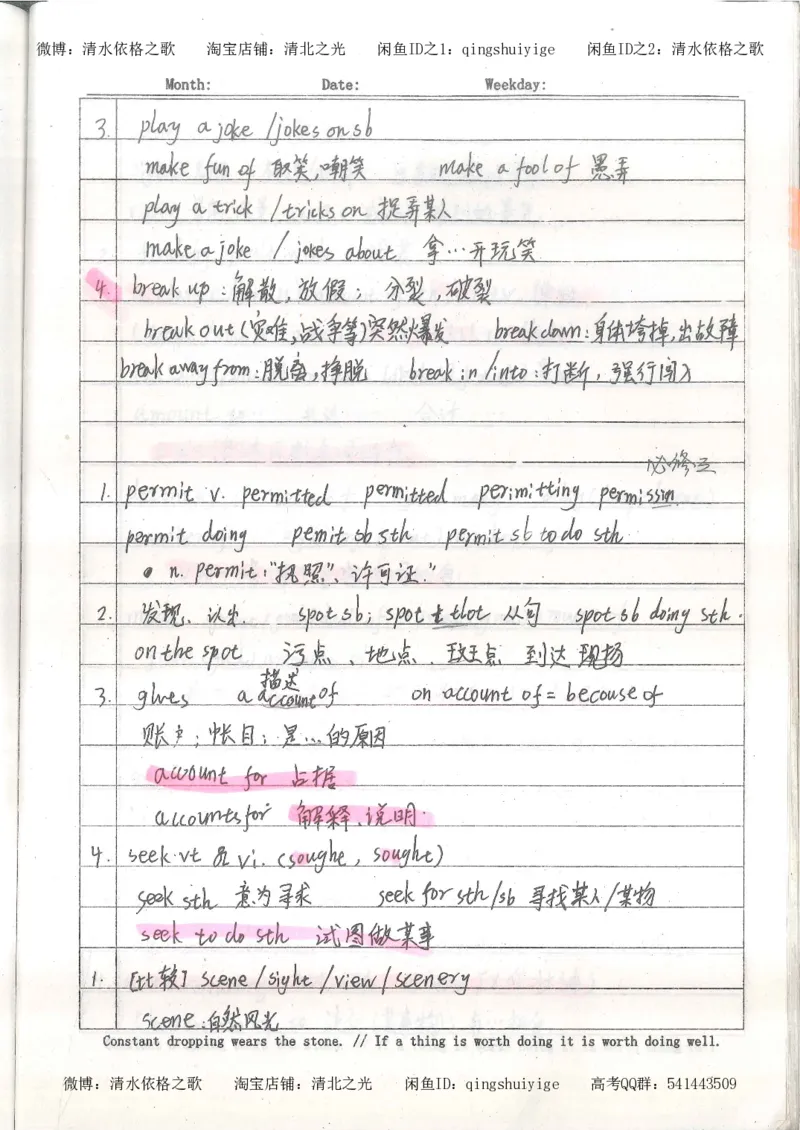 微博：清水依格之歌 淘宝店铺：清北之光 闲鱼ID之1：qingshuiyige 闲鱼ID之2：清水依格之歌
Month: Date: Weekday:
3. play a joke /jokes on sb
make fun of 取笑,嘲笑 make a fool of 愚弄
play a trick /tricks on 捉弄某人
make a joke / jokes about 拿…开玩笑
4. break up：解散，放假； 分裂，破裂
break out (灾难,战争等)突然爆发 break down：身体垮掉,出故障
break away from：脱离，挣脱 break in /into：打断，强行闯入
必修三
1. permit v. permitted permitted perimitting permissin
permit doing pemit sb sth permit sb to do sth
• n. permit："执照"、许可证."
2. 发现、认出. spot sb; spot + that 从句 spot sb doing sth.
on the spot 污点、地点、斑点 到达现场
描述
3. gives a account of on account of = becouse of
账户；帐目；是…的原因
account for 占据
accounts for 解释、说明.
4. seek vt 及 vi. (soughe, sought)
seek sth 意为寻求 seek for sth/sb 寻找某人/某物
seek to do sth 试图做某事
1. [比较] scene /sight /view / scenery
scene：自然风光
Constant dropping wears the stone. // If a thing is worth doing it is worth doing well.
微博：清水依格之歌 淘宝店铺：清北之光 闲鱼ID：qingshuiyige 高考QQ群：541443509